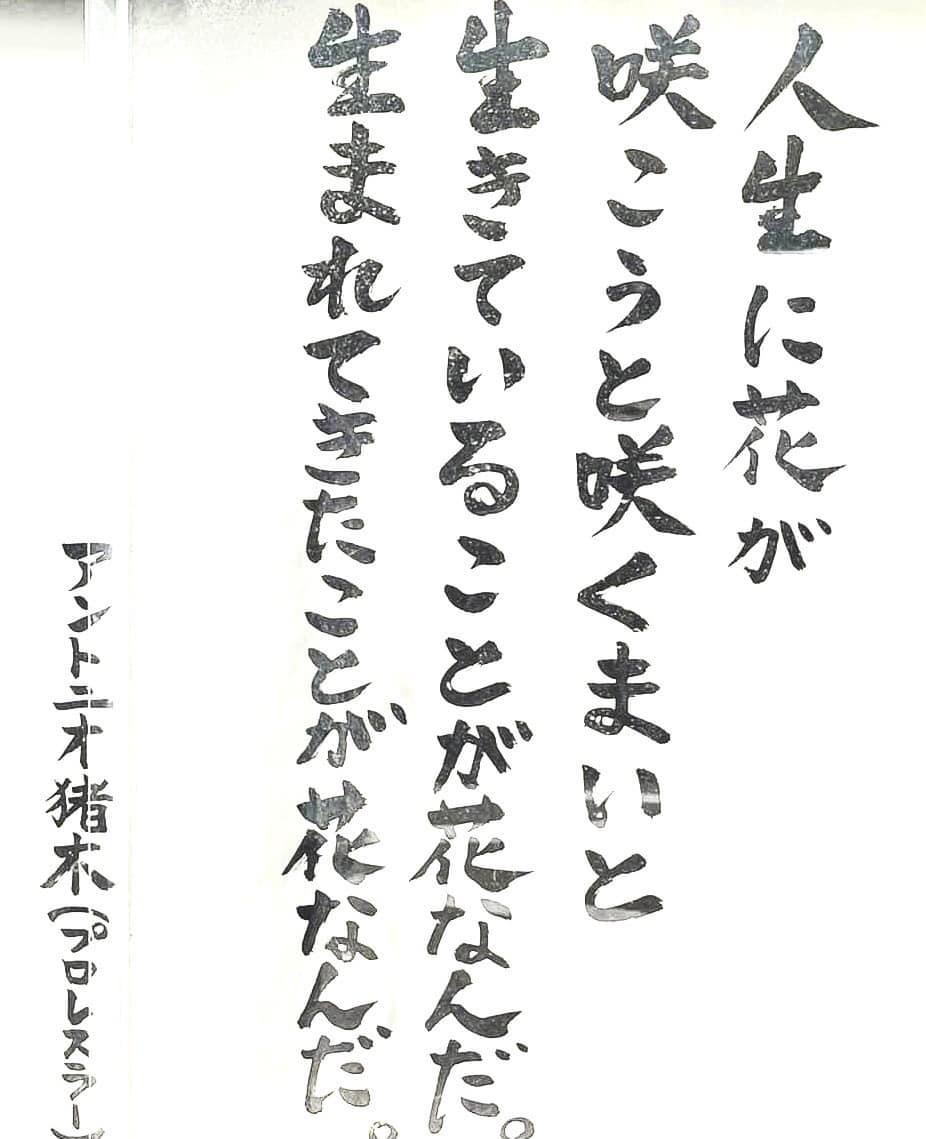 人生に花が
咲こうと咲くまいと
生きていることが花なんだ。
生まれてきたことが花なんだ。
アントニオ猪木(プロレスラー)